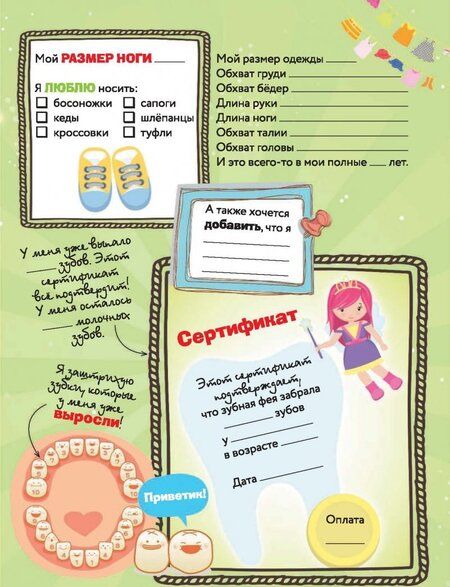 Мой РАЗМЕР НОГИ _____
Я ЛЮБЛЮ носить:
босоножки
кеды
кроссовки
сапоги
шлёпанцы
туфли
Мой размер одежды _____
Обхват груди _____
Обхват бёдер _____
Длина руки _____
Длина ноги _____
Обхват талии _____
Обхват головы _____
И это всего-то в мои полные ___ лет.
А также хочется
добавить, что я
У меня уже выпало
_____ зубов. Этот
сертификат
всё подтвердит!
У меня осталось
_____ молочных
зубов.
Я заштрихую
зубки, которые
у меня уже
выросли!
Сертификат
Этот сертификат
подтверждает,
что зубная фея забрала
_____ зубов
у _____
в возрасте _____
Дата _____
Оплата
Приветик!